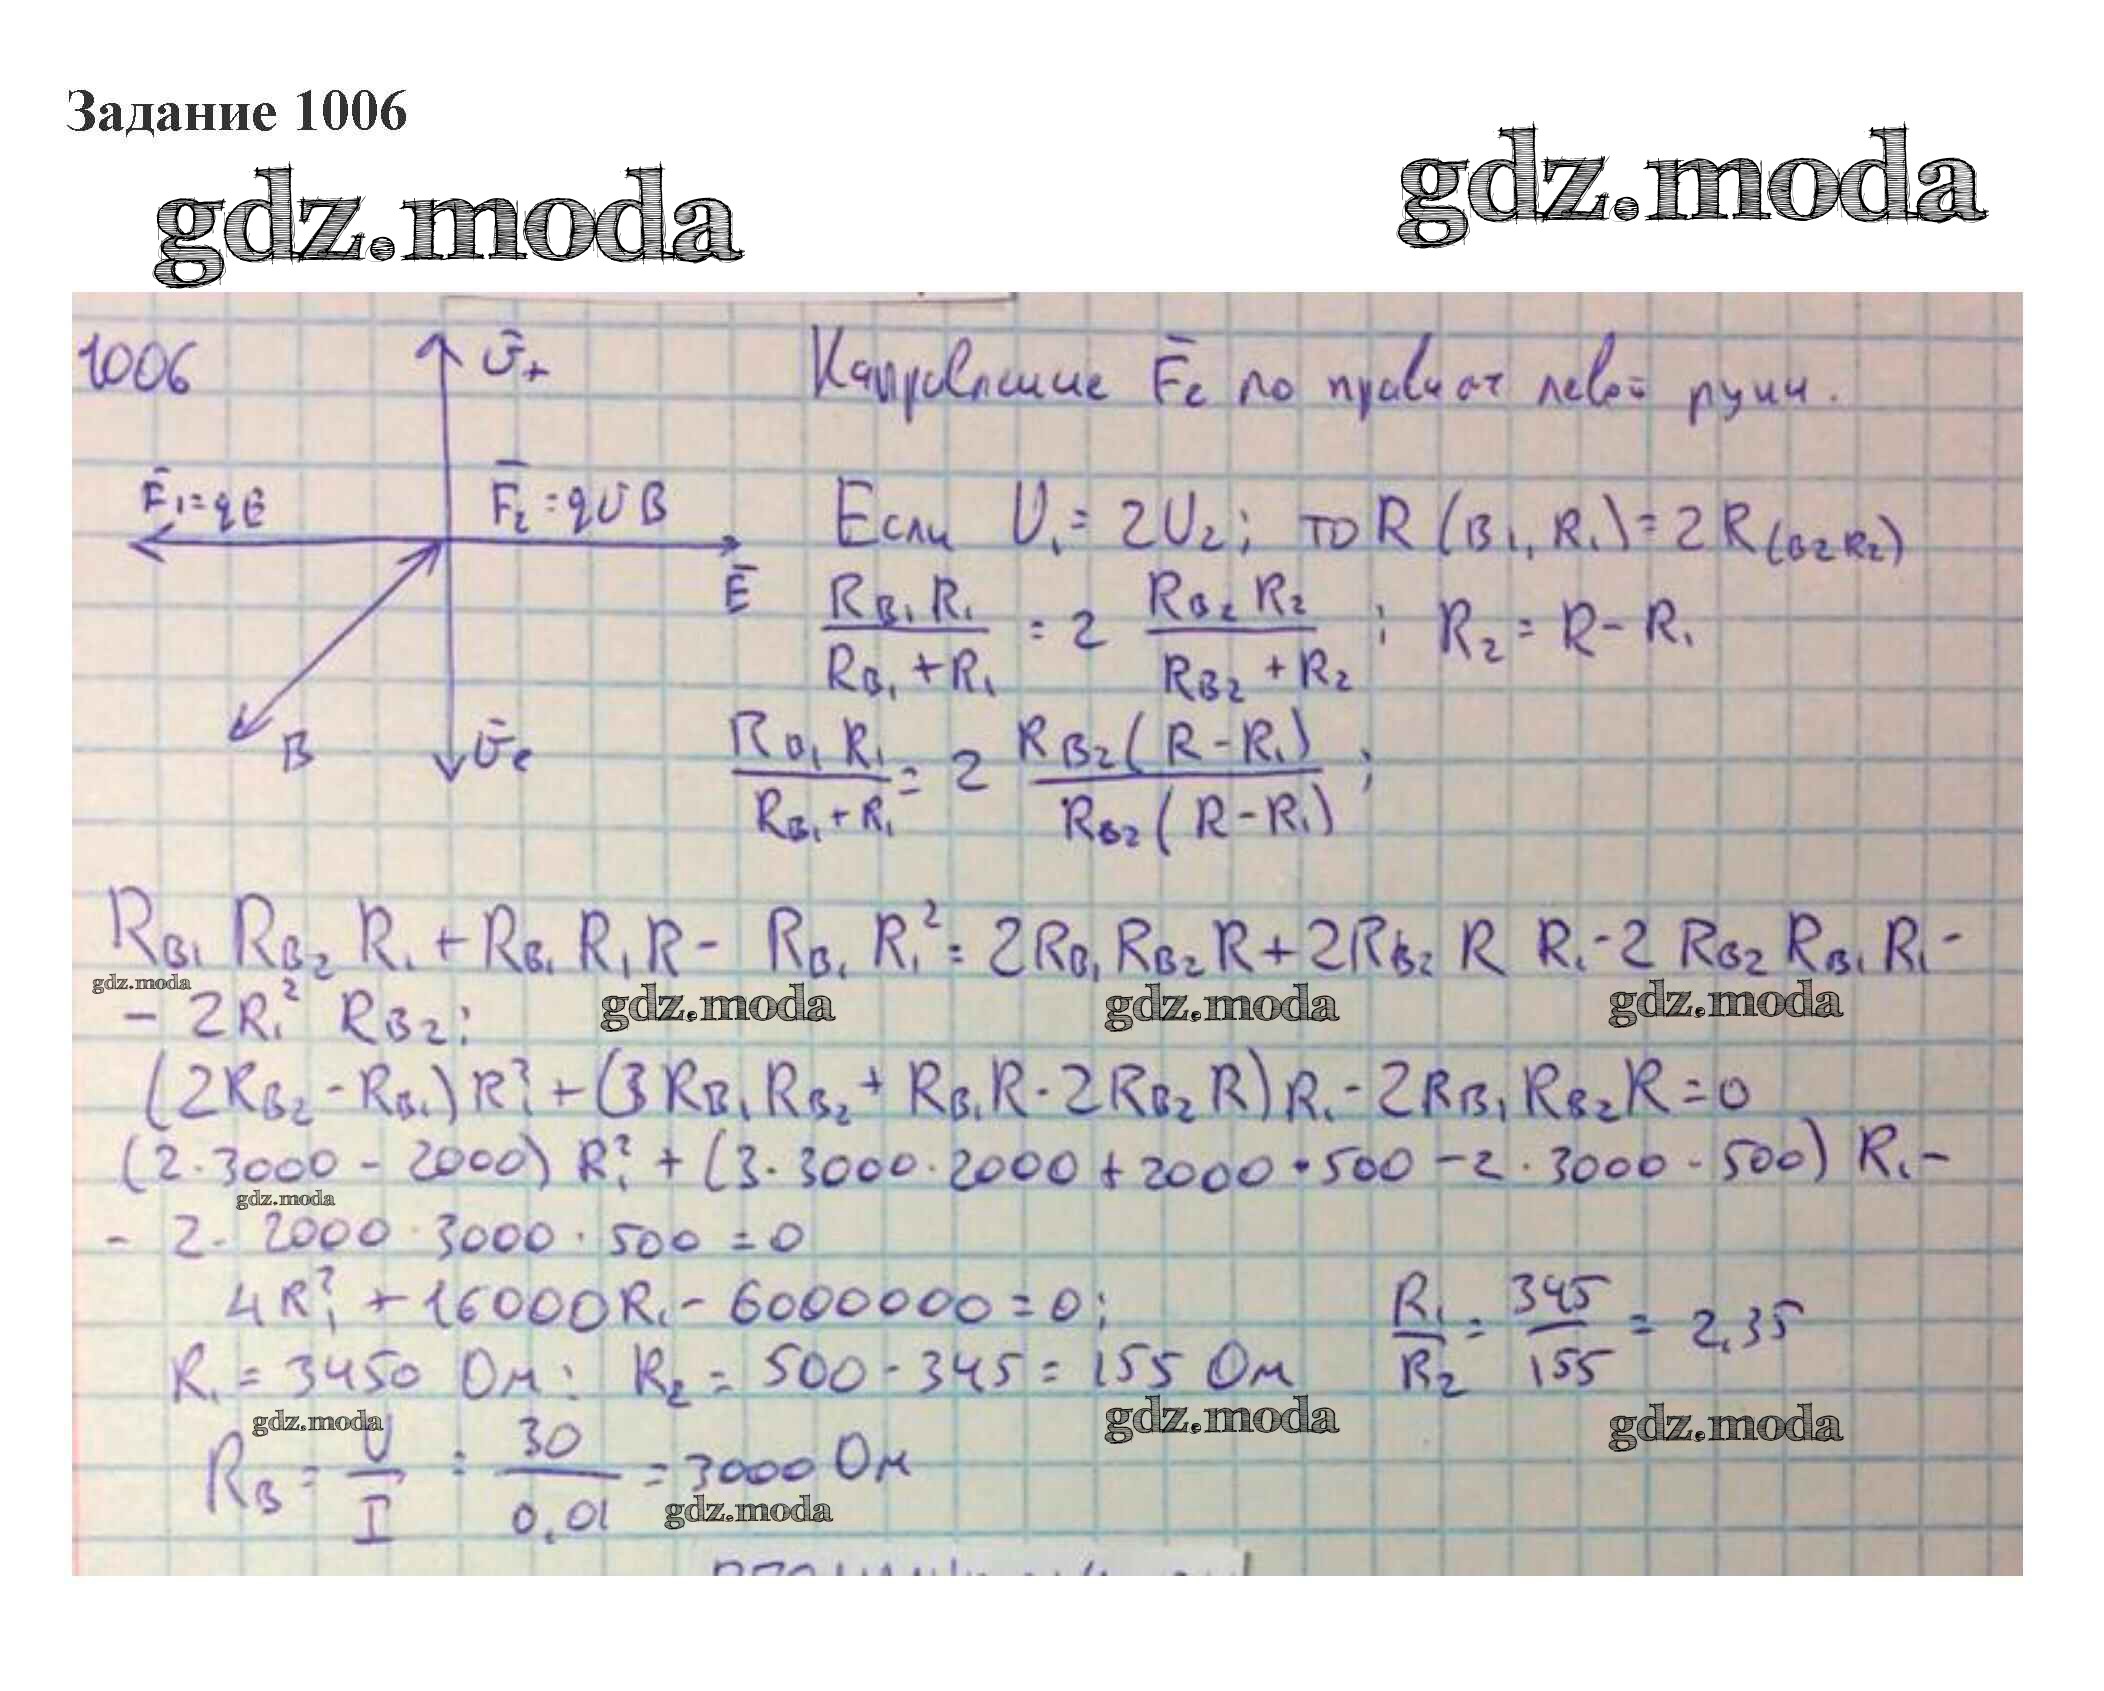 Задание 1006
gdz.moda
gdz.moda
1006
v̄₊
Направление F̄e по правилу левой руки.
F̄₁=qE
F̄₂=qvB
Ē
B
v̄e
Если U₁=2U₂; то R(B₁,R₁)=2R(B₂R₂)
RB₁R₁/(RB₁+R₁) = 2 RB₂R₂/(RB₂+R₂); R₂=R-R₁
RB₁R₁/(RB₁+R₁) = 2 RB₂(R-R₁)/(RB₂(R-R₁));
RB₁RB₂R₁+RB₁R₁R-RB₁R₁²=2RB₁RB₂R+2RB₂RR₁-2RB₂RB₁R₁-
gdz.moda
gdz.moda
gdz.moda
gdz.moda
-2R₁²RB₂;
(2RB₂-RB₁)R₁²+(3RB₁RB₂+RB₁R-2RB₂R)R₁-2RB₁RB₂R=0
(2·3000-2000)R₁²+(3·3000·2000+2000·500-2·3000·500)R₁-
gdz.moda
-2·2000·3000·500=0
4R₁²+16000R₁-6000000=0;
R₁/R₂=345/155=2,35
R₁=3450 Ом; R₂=500-345=155 Ом
gdz.moda
gdz.moda
gdz.moda
RB=U/I=30/0,01=3000 Ом
gdz.moda